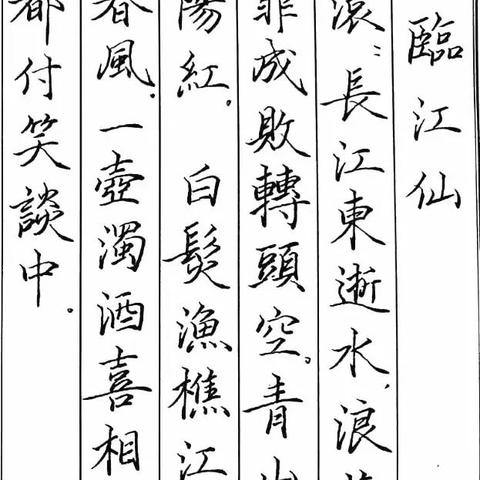 臨江仙
滾：長江東逝水，浪
非成敗轉頭空。青山
陽紅。 白髮漁樵江
春風。一壺濁酒喜相
都付笑談中。